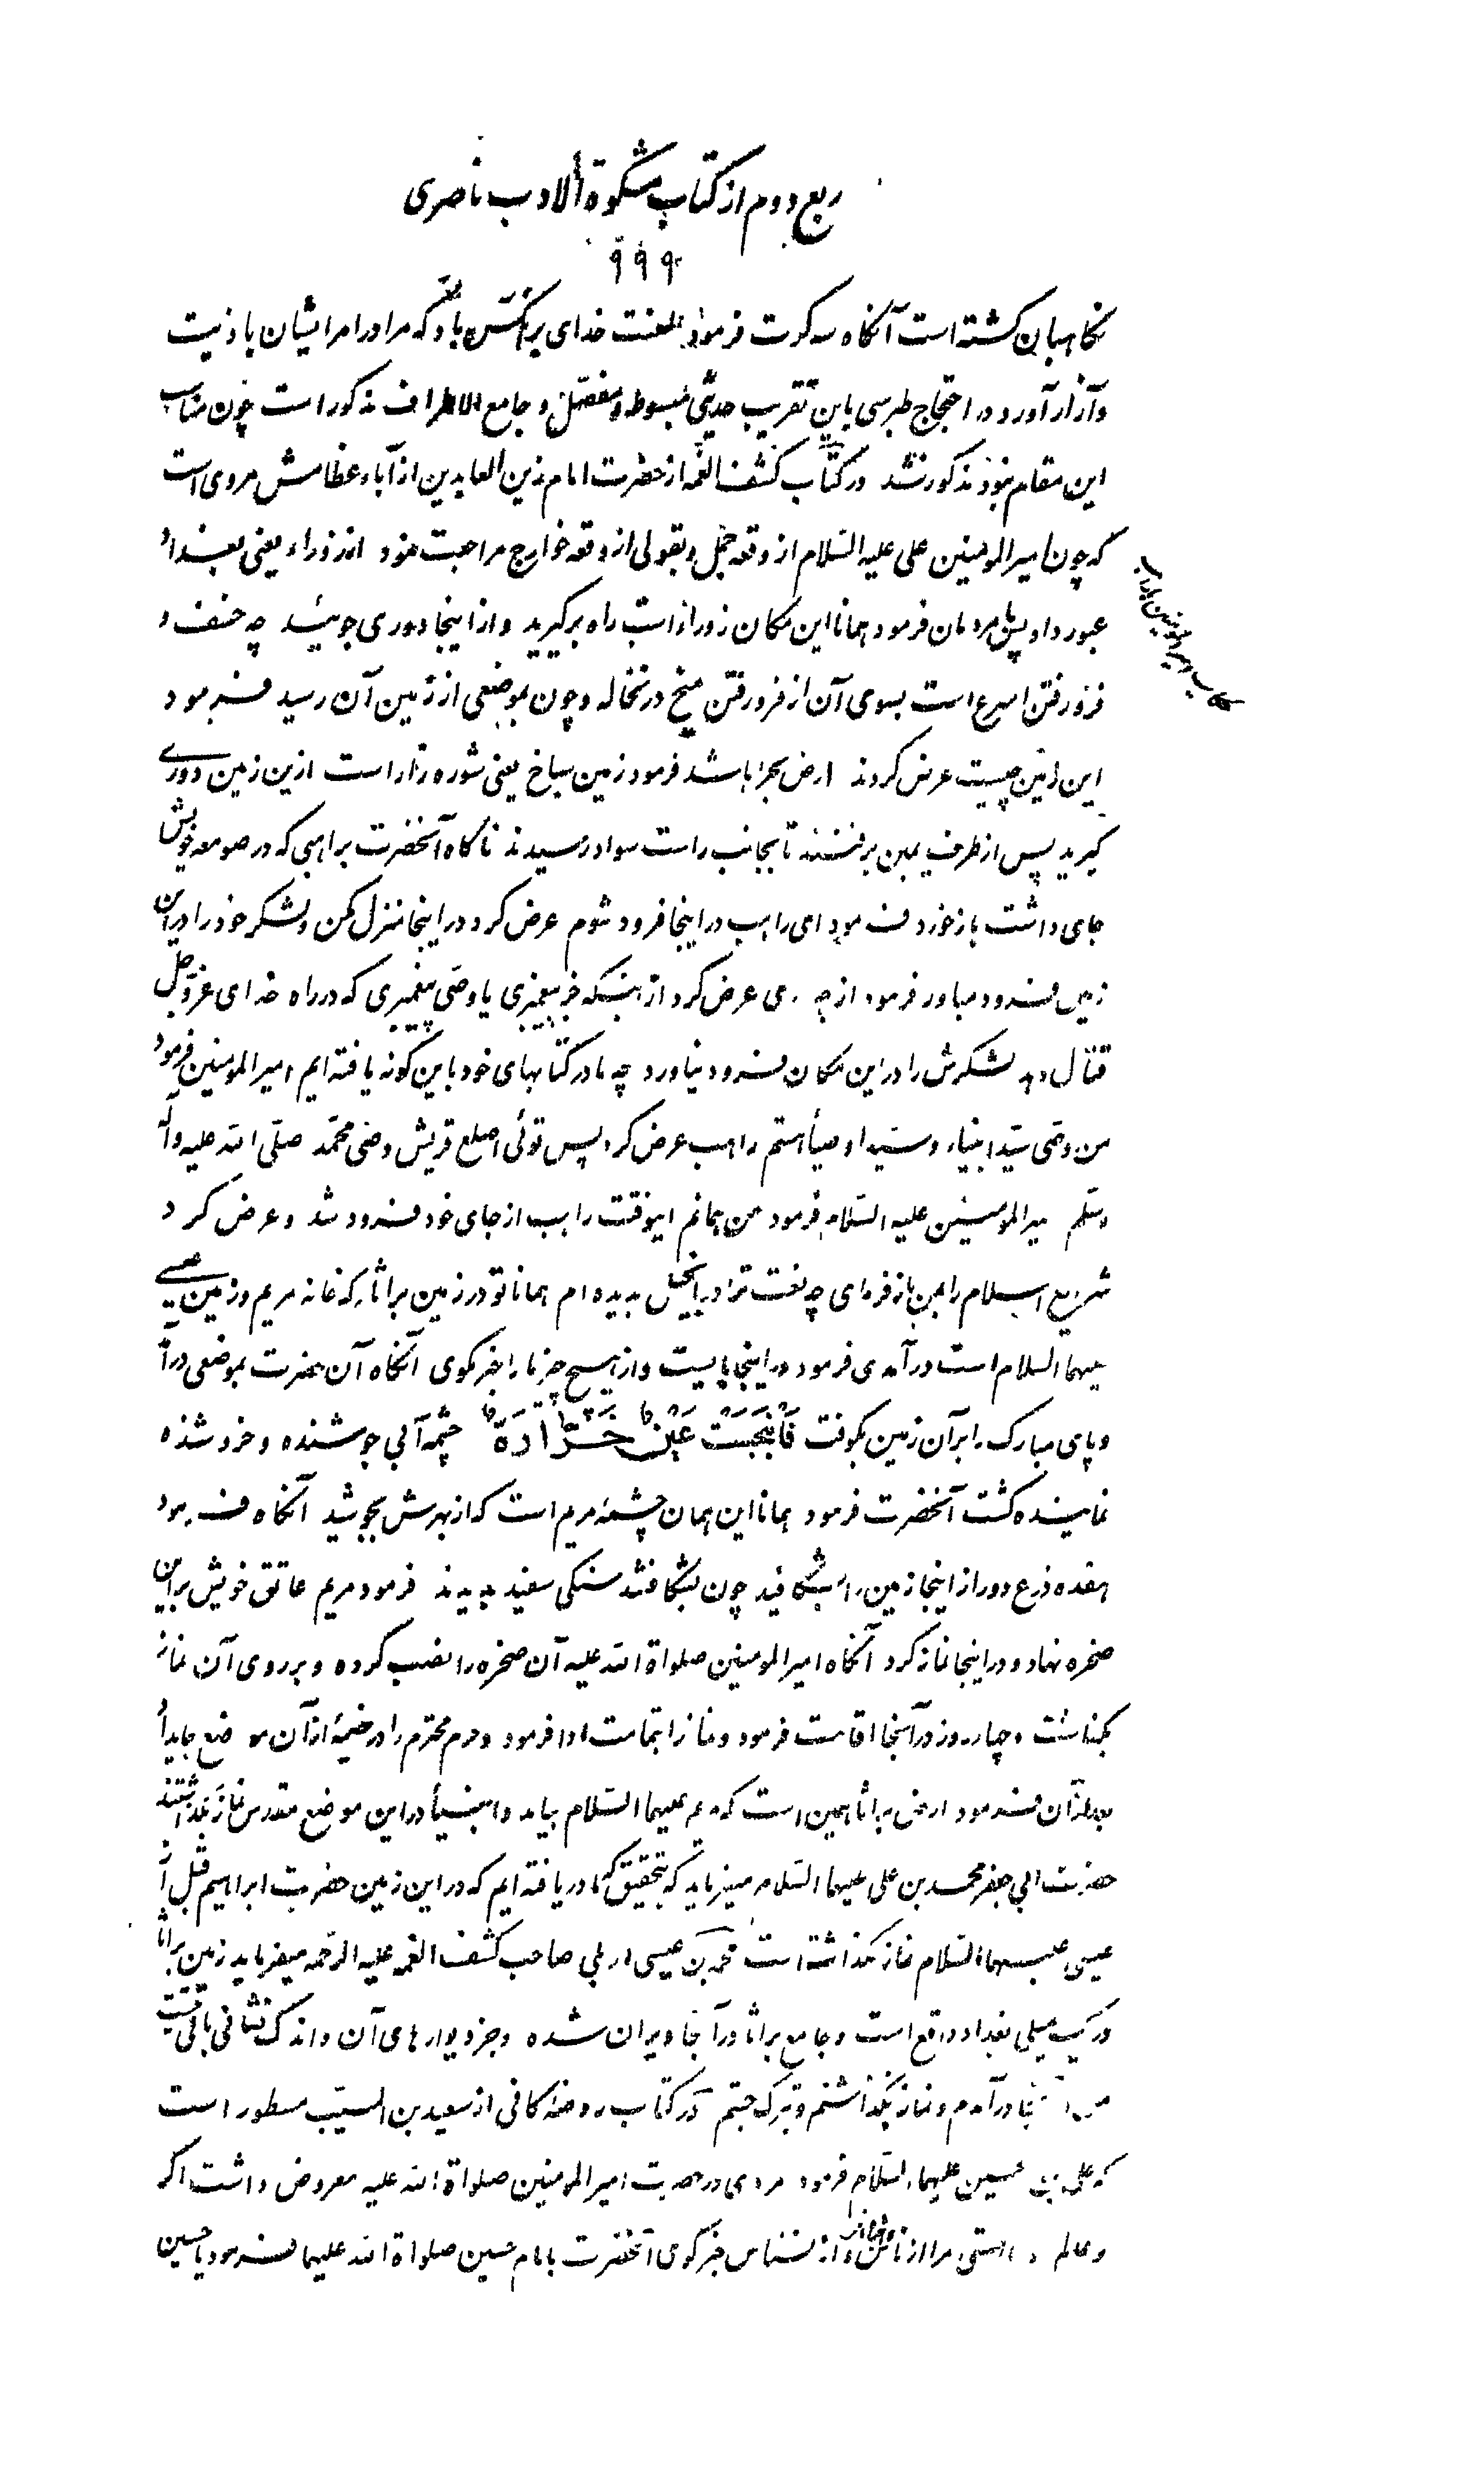 ربع دوم از کتاب مشکوة الادب ناصری
۹۹۹
نکاهبان کشته است آنکاه سه کرت فرمود لعنت خدای بر آنکس باد که مرا در امر ایشان باذیت
و آزار آورد در احتجاج طبرسی باین تقریب حدیثی مبسوط و مفصل و جامع الاطراف مذکور است چون مناسب
این مقام نبود مذکور نشد در کتاب کشف الغمه از حضرت امام زین العابدین از آباء عظامش مروی است
که چون امیر المومنین علی علیه السلام از وقعه جمل و بقولی از وقعه خوارج مراجعت نمود از زوراء یعنی بغداد
عبور داد پس بامردمان فرمود همانا این مکان زوراء است راه برکیرید و از اینجا دوری جوئید چه خسف و
فرو رفتن اسرع است بسوی آن از فرو رفتن میخ در نخاله و چون بموضعی از زمین آن رسید فرمود
این زمین چیست عرض کردند ارض بحرا باشد فرمود زمین سباخ یعنی شوره زار است ازین زمین دوری
کیرید پس از طرف یمین برفتند تا بجانب راست سواد رسیدند ناکاه آنحضرت براهبی که در صومعه خویش
جای داشت باز خورد فرمود ای راهب در اینجا فرود شوم عرض کرد در اینجا منزل مکن و لشکر خود را در این
زمین فرود میاور فرمود از چه روی عرض کرد از اینکه جز پیغمبری یا وصی پیغمبری که در راه خدای عز و جل
قتال دهد لشکرش را در این مکان فرود نیاورد چه ما در کتابهای خود باین کونه یافته ایم امیر المومنین فرمود
من وصی سید انبیاء و سید اوصیا هستم راهب عرض کرد پس توئی اصلع قریش وصی محمد صلی الله علیه و آله
وسلم امیر المومنین علیه السلام فرمود من همانم اینوقت راهب از جای خود فرود شد و عرض کرد
شرایع اسلام را بمن بازفرمای چه نعت ترا در انجیل بدیده ام همانا تو در زمین براثا که خانه مریم و زمین عیسی
علیهما السلام است درآمدی فرمود در اینجا بایست و از هیچ چیز ما را خبر مکوی آنکاه آن حضرت بموضعی درآمد
و پای مبارک را بر آن زمین بکوفت فَانْبَجَسَتْ عَیْنٌ خَرَّارَةٌ چشمه آبی جوشنده و خروشنده
نماینده کشت آنحضرت فرمود همانا این همان چشمه مریم است که از بهرش بجوشید آنکاه فرمود
هفده ذرع دور از اینجا زمین را بشکافید چون بشکافتند سنکی سفید بدیدند فرمود مریم عاتق خویش بر این
صخره نهاد و در اینجا نماز کرد آنکاه امیر المومنین صلواة الله علیه آن صخره را نصب کرده و بر روی آن نماز
بکذاشت و چهار روز در آنجا اقامت فرمود و نماز را بتمامت ادا فرمود و حرم محترم را در خیمه از آن موضع جای داد
بعد از آن فرمود ارض براثا همین است که مریم علیهما السلام بیامد و انبیا در این موضع مقدس نماز بکذاشتند
حضرت ابی جعفر محمد بن علی علیهما السلام میفرماید که بتحقیق که ما دریافته ایم که در این زمین حضرت ابراهیم قبل از
عیسی علیهما السلام نماز بکذاشته است محمد بن عیسی اربلی صاحب کشف الغمه علیه الرحمه میفرماید زمین براثا
در یک میلی بغداد واقع است و جامع براثا در آنجا ویران شده و جز دیوارهای آن و اندک نشانی باقی نیست
من در آنجا درآمدم و نماز بکذاشتم و تبرک جستم در کتاب روضه کافی از سعید بن المسیب مسطور است
که علی بن حسین علیهما السلام فرمود مردی در حضرت امیر المومنین صلواة الله علیه معروض داشت اکر
و عالم داستی مرا از ناس و از نسناس خبر کوی آنحضرت بامام حسین صلواة الله علیهما فرمود یا حسین